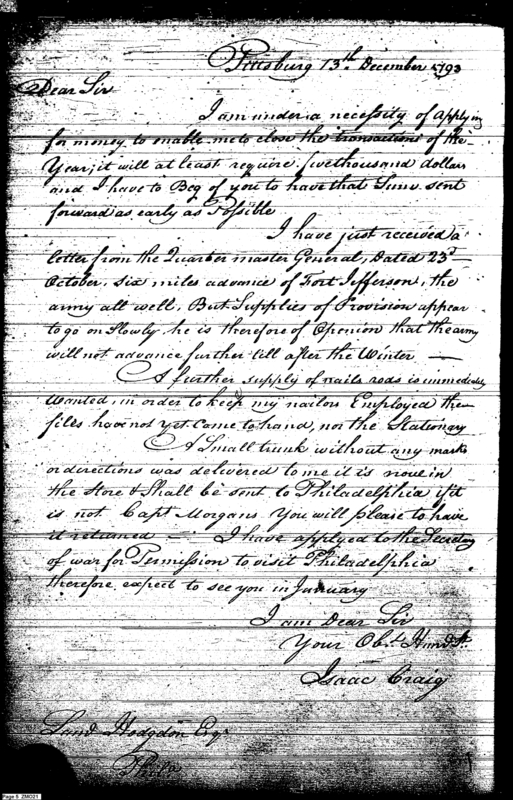 Pittsburg 13th December 1793
Dear Sir
I am under a necessity of applying
for money to enable me to close the transactions of the
Year; it will at least require fivethousand dollars
and I have to Beg of you to have that Sum sent
forward as early as Possible
I have just received a
letter from the Quarter master General, Dated 23d
October, six miles advance of Fort Jefferson, the
army all well, But Supplies of Provision appear
to go on Slowly, he is therefore of Openion that the army
will not advance further till after the Winter —
A further supply of nails rods is immediately
Wanted, in order to keep my nailors Employed the
files have not yet come to hand, nor the Stationary
A Small trunk without any marks
or directions was delivered to me it is now in
the Store & Shall be sent to Philadelphia if it
is not Capt Morgans You will please to have
it returned — I have applyed to the Secretary
of war for Permission to visit Philadelphia
therefore expect to see you in January
I am Dear Sir
Your Obt. Humb St.
Isaac Craig
Saml Hodgdon Esqr
Phila
Page 5 ZMG21